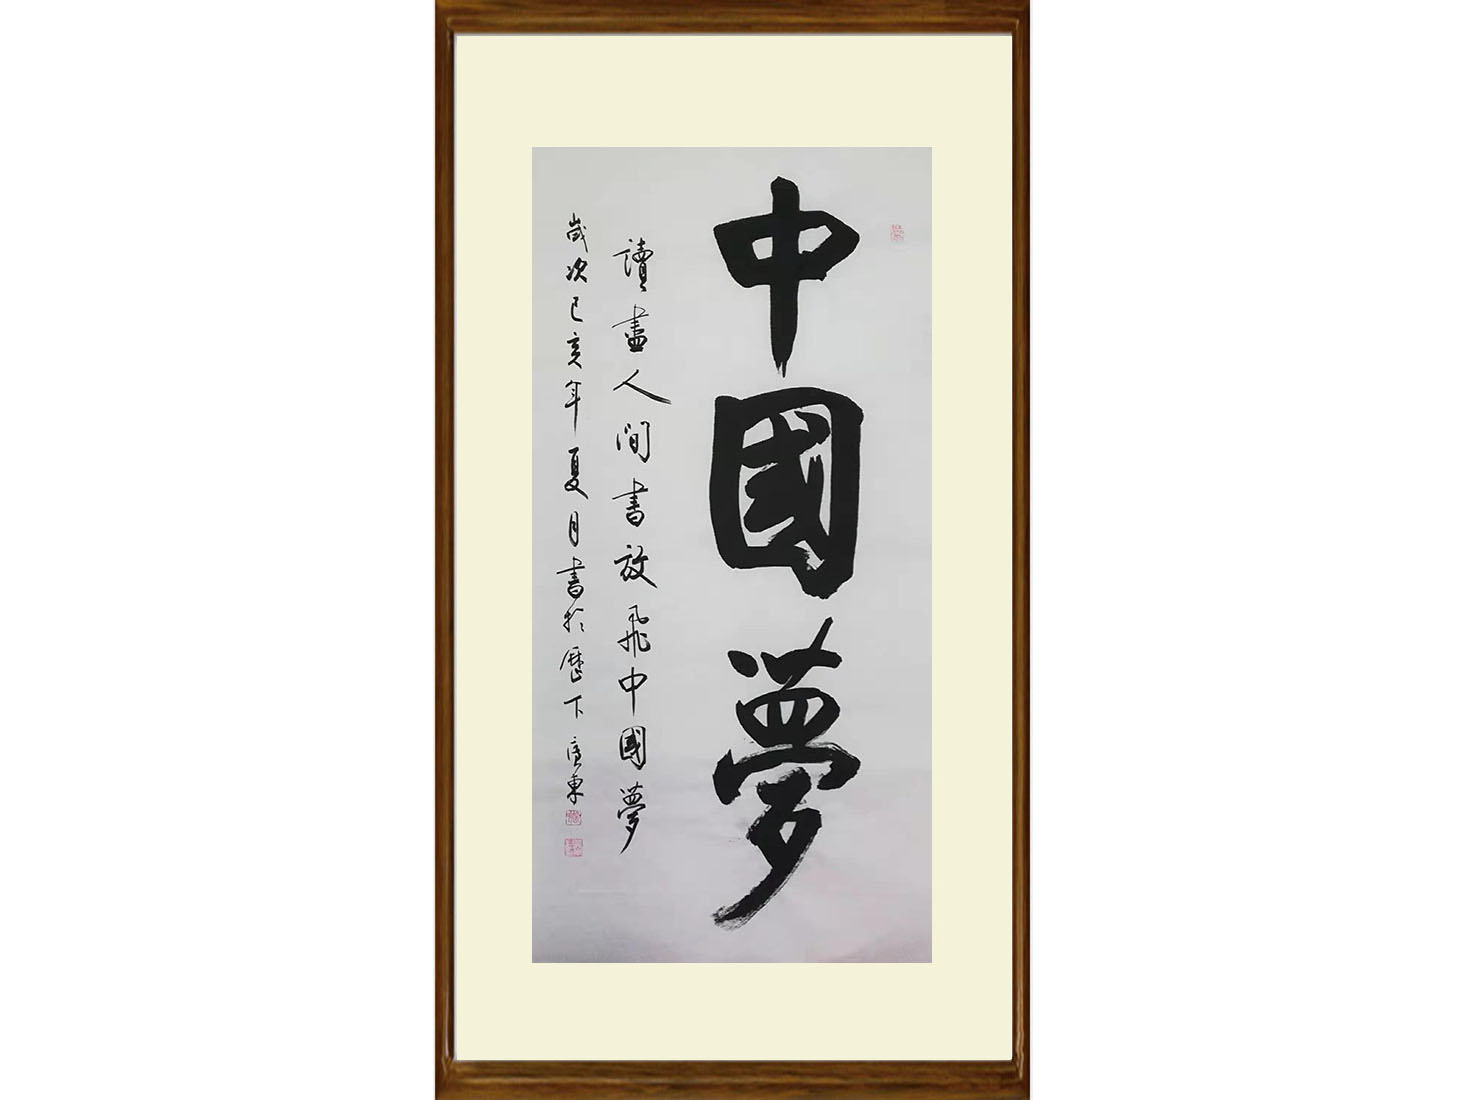 中國夢
讀盡人間書放飛中國夢
歲次己亥年夏月書於歷下廣東